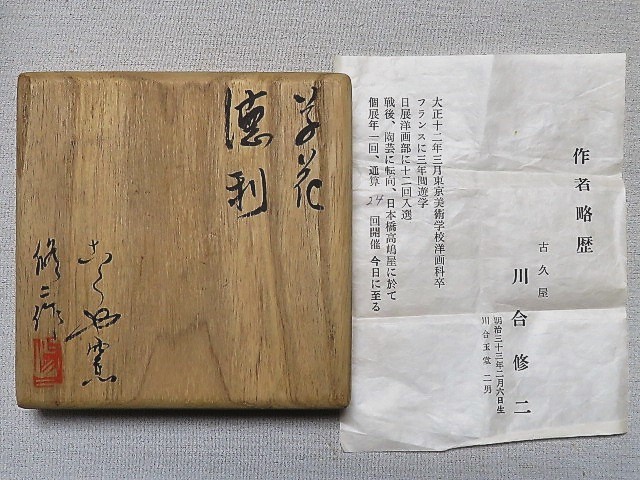 草花
徳利
古久や窯
修二作
作者略歴
古久屋
川合修二
明治三十三年二月六日生
川合玉堂二男
大正十二年三月東京美術学校洋画科卒
フランスに三年間遊学
日展洋画部に十二回入選
戦後、陶芸に転向、日本橋高嶋屋に於て
個展年一回、通算24回開催 今日に至る